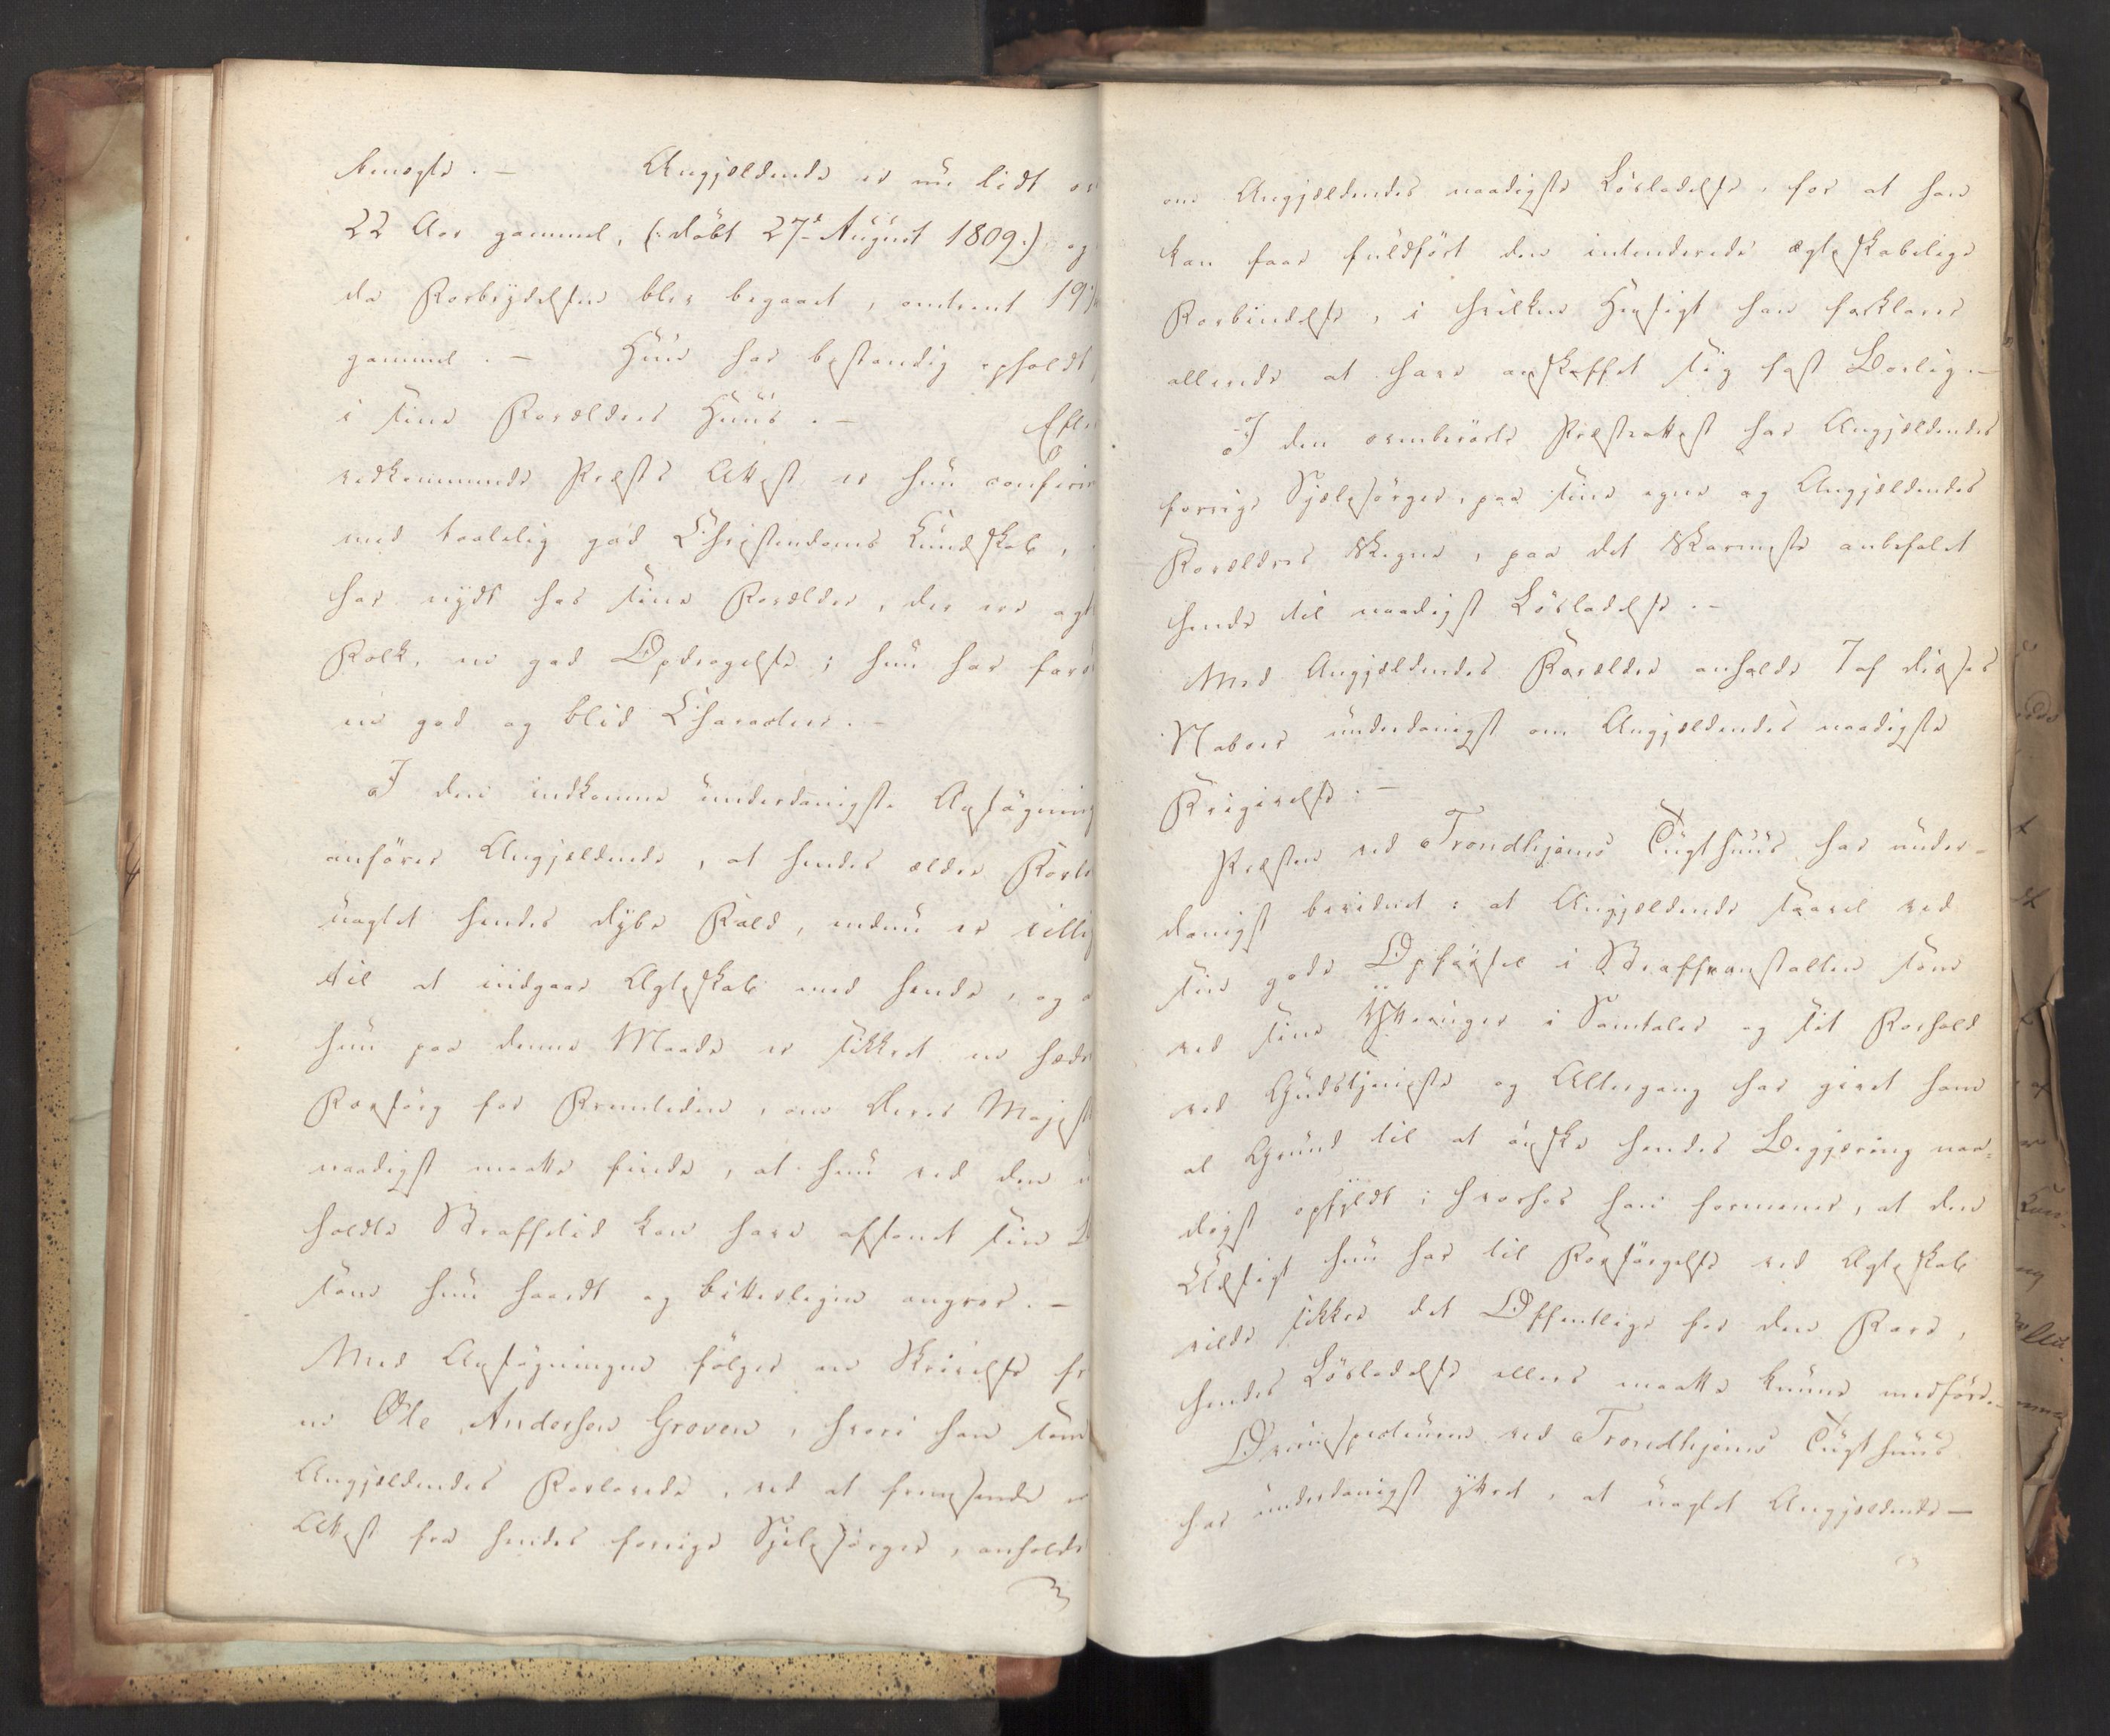 benegte. — Angjældende er nu lidt ov
22 Aar gammel, (: döbt 27de August 1809.) og
da Forbrydelsen blev begaaet, omtrent 19
gammel. — Hun har bestandig opholdt
i sine Forældres Huus. — Efter
vedkommende Præsts Attest er hun confir
med taalelig god Christendoms Kundskab,
har nydt hos sine Forældre, der ere agt
Folk, en god Opdragelse; hun har for
en god og blid Character. —
I den indkomne underdanigste Ansögning
anförer Angjældende, at hendes ældre Forlo
uagtet hendes dybe Fald, endnu er villig
til at indgaae Ægteskab med hende, og a
hun paa denne Maade er sikkret en hæde
Forsörg for Fremtiden, om Deres Majest
naadigst maatte finde, at hun ved den u
holdte Straffetid kan have afsonet sin
som hun haardt og bitterligen angrer. —
Med Ansögningen fölger en Skrivelse fr
en Ole Andersen Groven, hvori han som
Angjældendes Forlovede, ved at fremsende e
Attest fra hendes forrige Sjelesörger, anholde
om Angjældendes naadigste Lösladelse, for at han
kan faae fuldfört den intenderede ægteskabelige
Forbindelse, i hvilken Hensigt han forklarer
allerede at have anskaffet sig fast Bolig. —
I den ommeldte Præsteattest har Angjældendes
forrige Sjelesörger, paa sine egne og Angjældendes
Forældres Vegne, paa det Varmeste anbefalet
hende til naadigst Lösladelse. —
Med Angjældendes Forældre anholde 7 af disses
Naboer underdanigst om Angjældendes naadigste
Frigivelse. —
Præsten ved Trondhjems Tugthuus har under-
danigst bevidnet: at Angjældende saavel ved
sin gode Opförsel i Straffeanstalten som
ved sine Yttringer i Samtaler og sit Forhold
ved Gudstjeneste og Altergang har givet ham
al Grund til at önske hendes Begjæring naa-
digst opfyldt; hvorhos han formener, at den
Udsigt hun har til Forsörgelse ved Ægteskab
vilde sikkre det Offentlige for den Fare,
hendes Lösladelse ellers maatte kunne medföre. —
Overinspecteuren ved Trondhjems Tugthuus
har underdanigst yttret, at uagtet Angjældende —